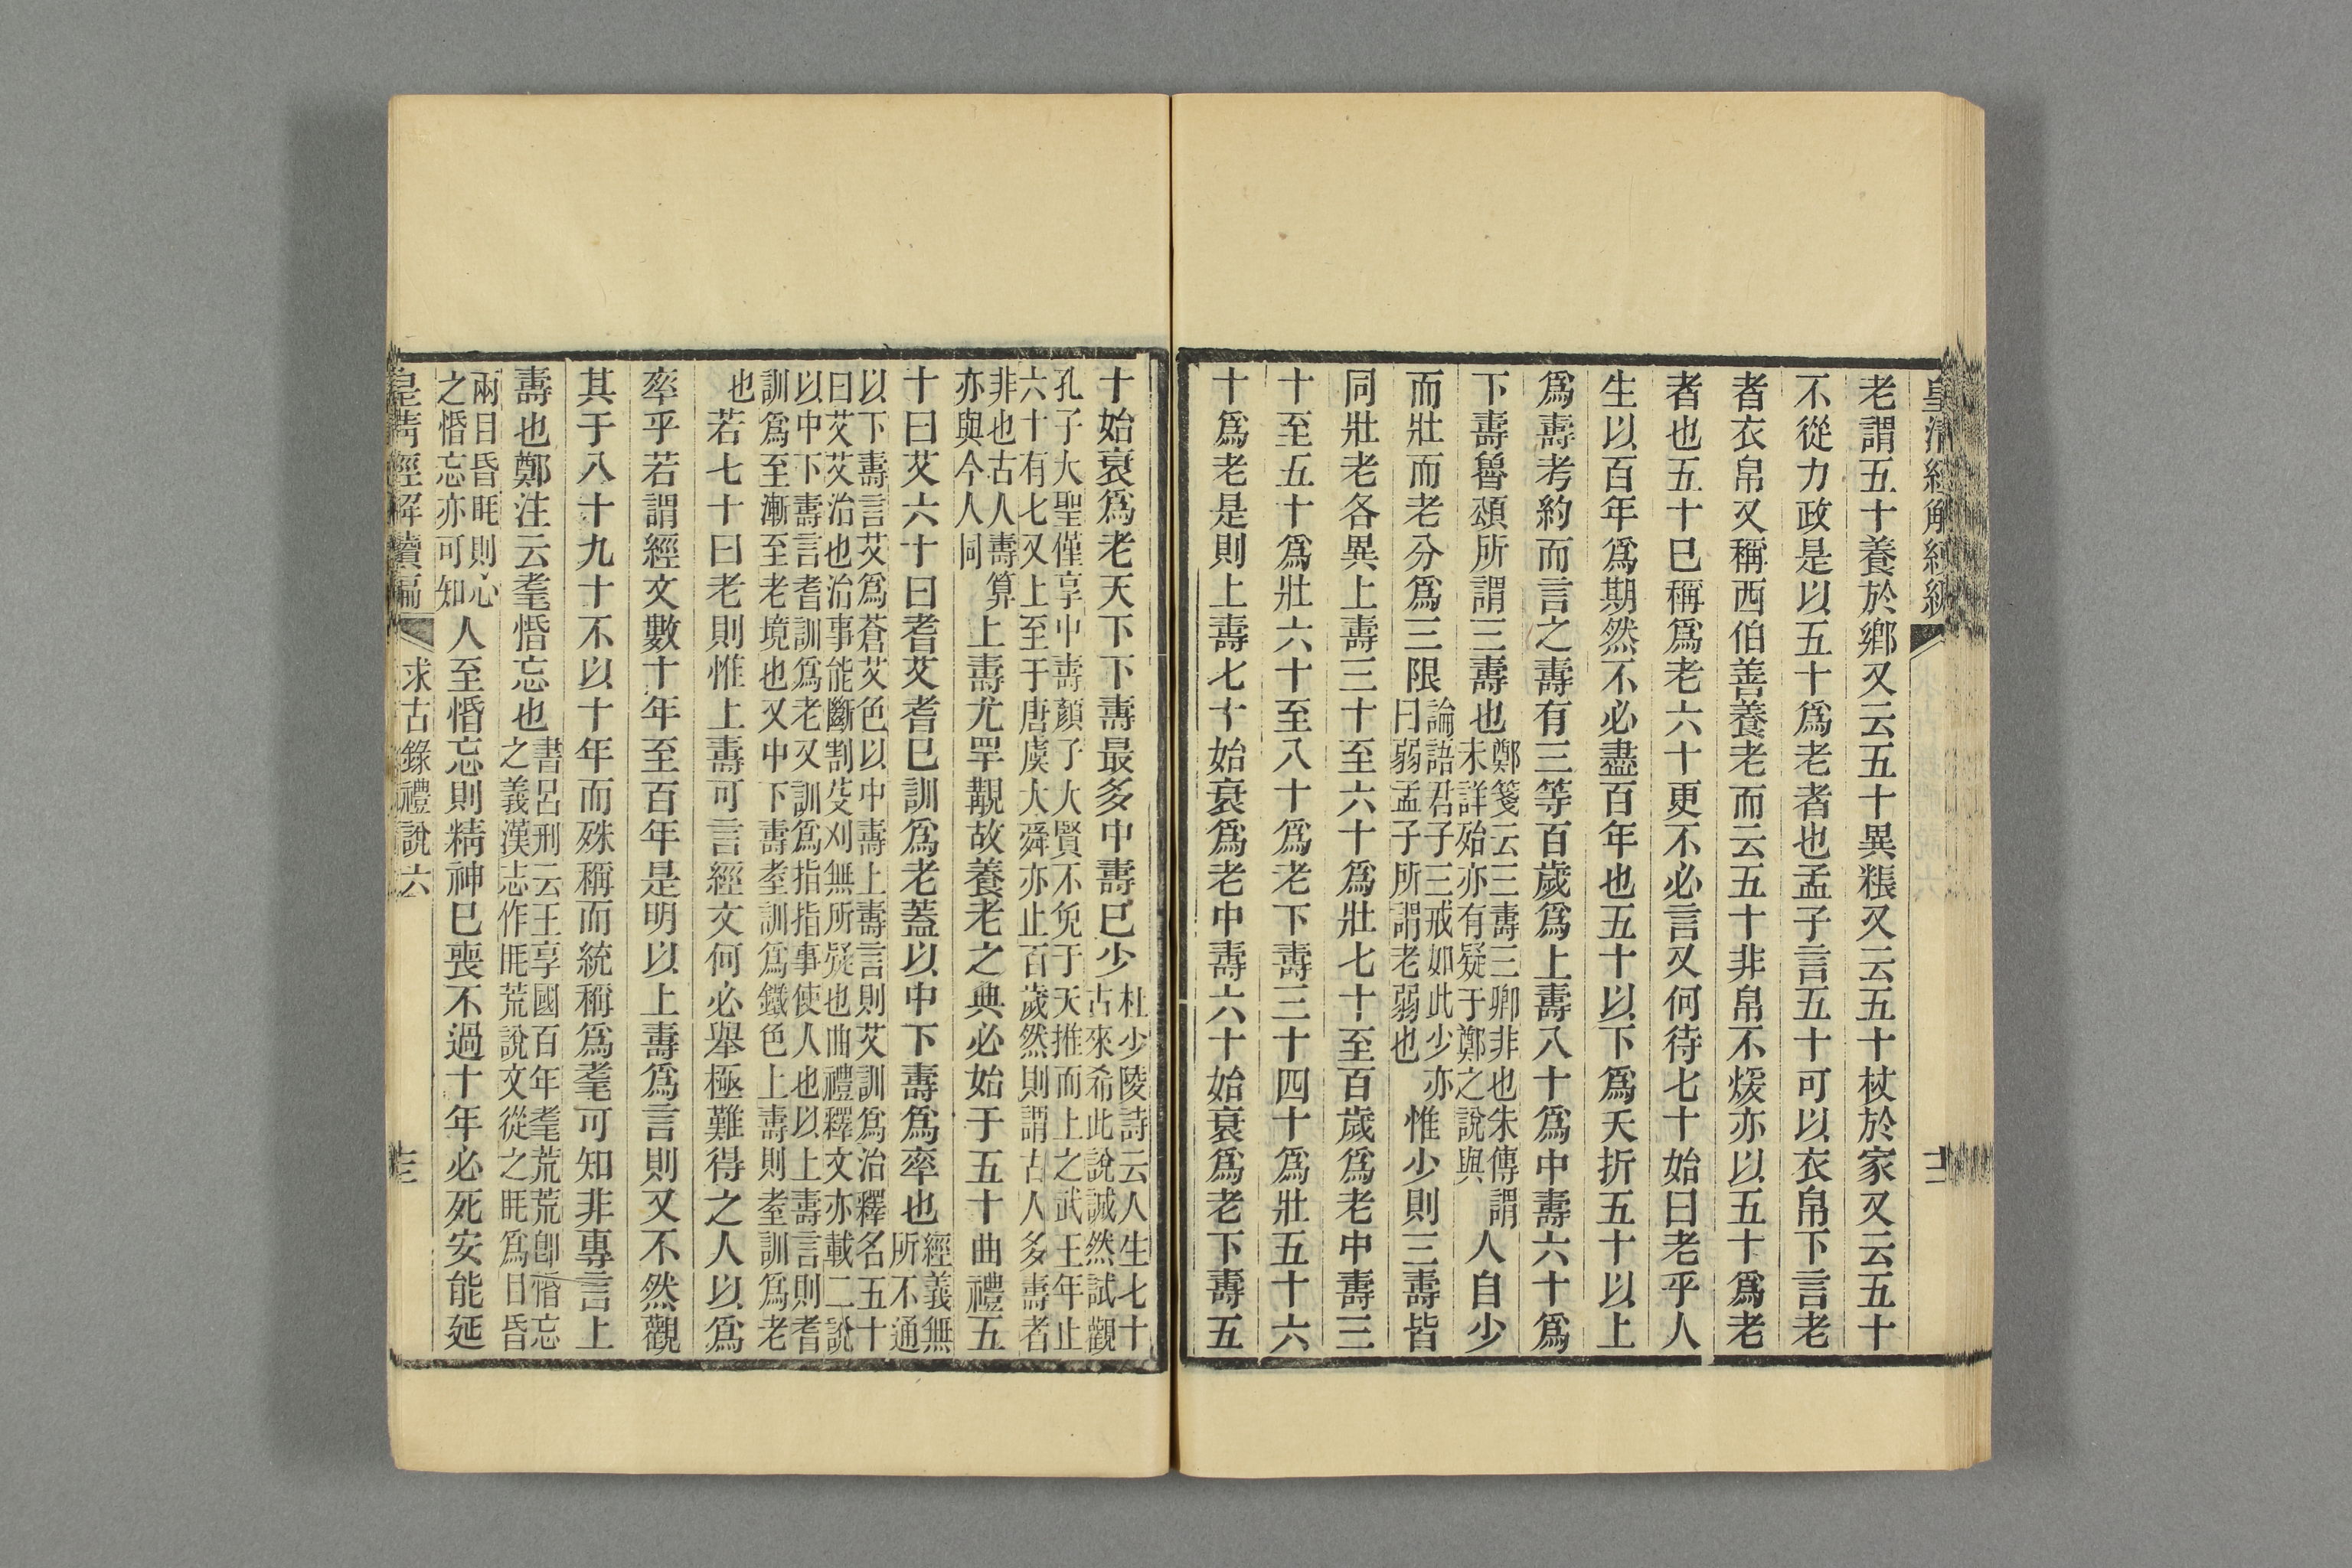 皇清經解續編
老謂五十養於鄉又云五十異粻又云五十杖於家又云五十
不從力政是以五十爲老者也孟子言五十可以衣帛下言老
者衣帛又稱西伯善養老而云五十非帛不煖亦以五十爲老
者也五十巳稱爲老六十更不必言又何待七十始曰老乎人
生以百年爲期然不必盡百年也五十以下爲夭折五十以上
爲壽考約而言之壽有三等百歲爲上壽八十爲中壽六十爲
下壽魯頌所謂三壽也鄭箋云三壽三卿非也朱傳謂未詳始亦有疑于鄭之說與人自少
而壯而老分爲三限論語君子三戒如此少亦曰弱孟子所謂老弱也惟少則三壽皆
同壯老各異上壽三十至六十爲壯七十至百歲爲老中壽三
十至五十爲壯六十至八十爲老下壽三十四十爲壯五十六
十爲老是則上壽七十始衰爲老中壽六十始衰爲老下壽五
十始衰爲老天下下壽最多中壽巳少杜少陵詩云人生七十古來希此說誠然試觀
孔子大聖僅享中壽顏子大賢不免于夭推而上之武王年止六十有七又上至于唐虞大舜亦止百歲然則謂古人多壽者
非也古人壽算亦與今人同上壽尤罕覯故養老之典必始于五十曲禮五
十曰艾六十曰耆艾耆巳訓爲老蓋以中下壽爲率也經義無所不通
以下壽言艾爲蒼艾色以中壽上壽言則艾訓爲治釋名五十曰艾艾治也治事能斷割芟刈無所疑也曲禮釋文亦載二說
以中下壽言耆訓爲老又訓爲指指事使人也以上壽言則耆訓爲至漸至老境也又中下壽耊訓爲鐵色上壽則耊訓爲老
也若七十曰老則惟上壽可言經文何必舉極難得之人以爲
率乎若謂經文數十年至百年是明以上壽爲言則又不然觀
其于八十九十不以十年而殊稱而統稱爲耄可知非專言上
壽也鄭注云耄惛忘也書呂刑云王享國百年耄荒荒卽惛忘之義漢志作眊荒說文從之眊爲目昏
兩目昏眊則心之惛忘亦可知人至惛忘則精神巳喪不過十年必死安能延
皇清經解續編 求古錄禮說六